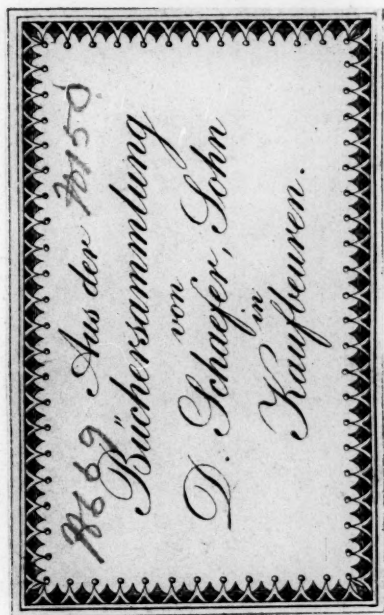 Aus der
Büchersammlung
von
D. Schaefer, Sohn
in
Kaufbeuren.